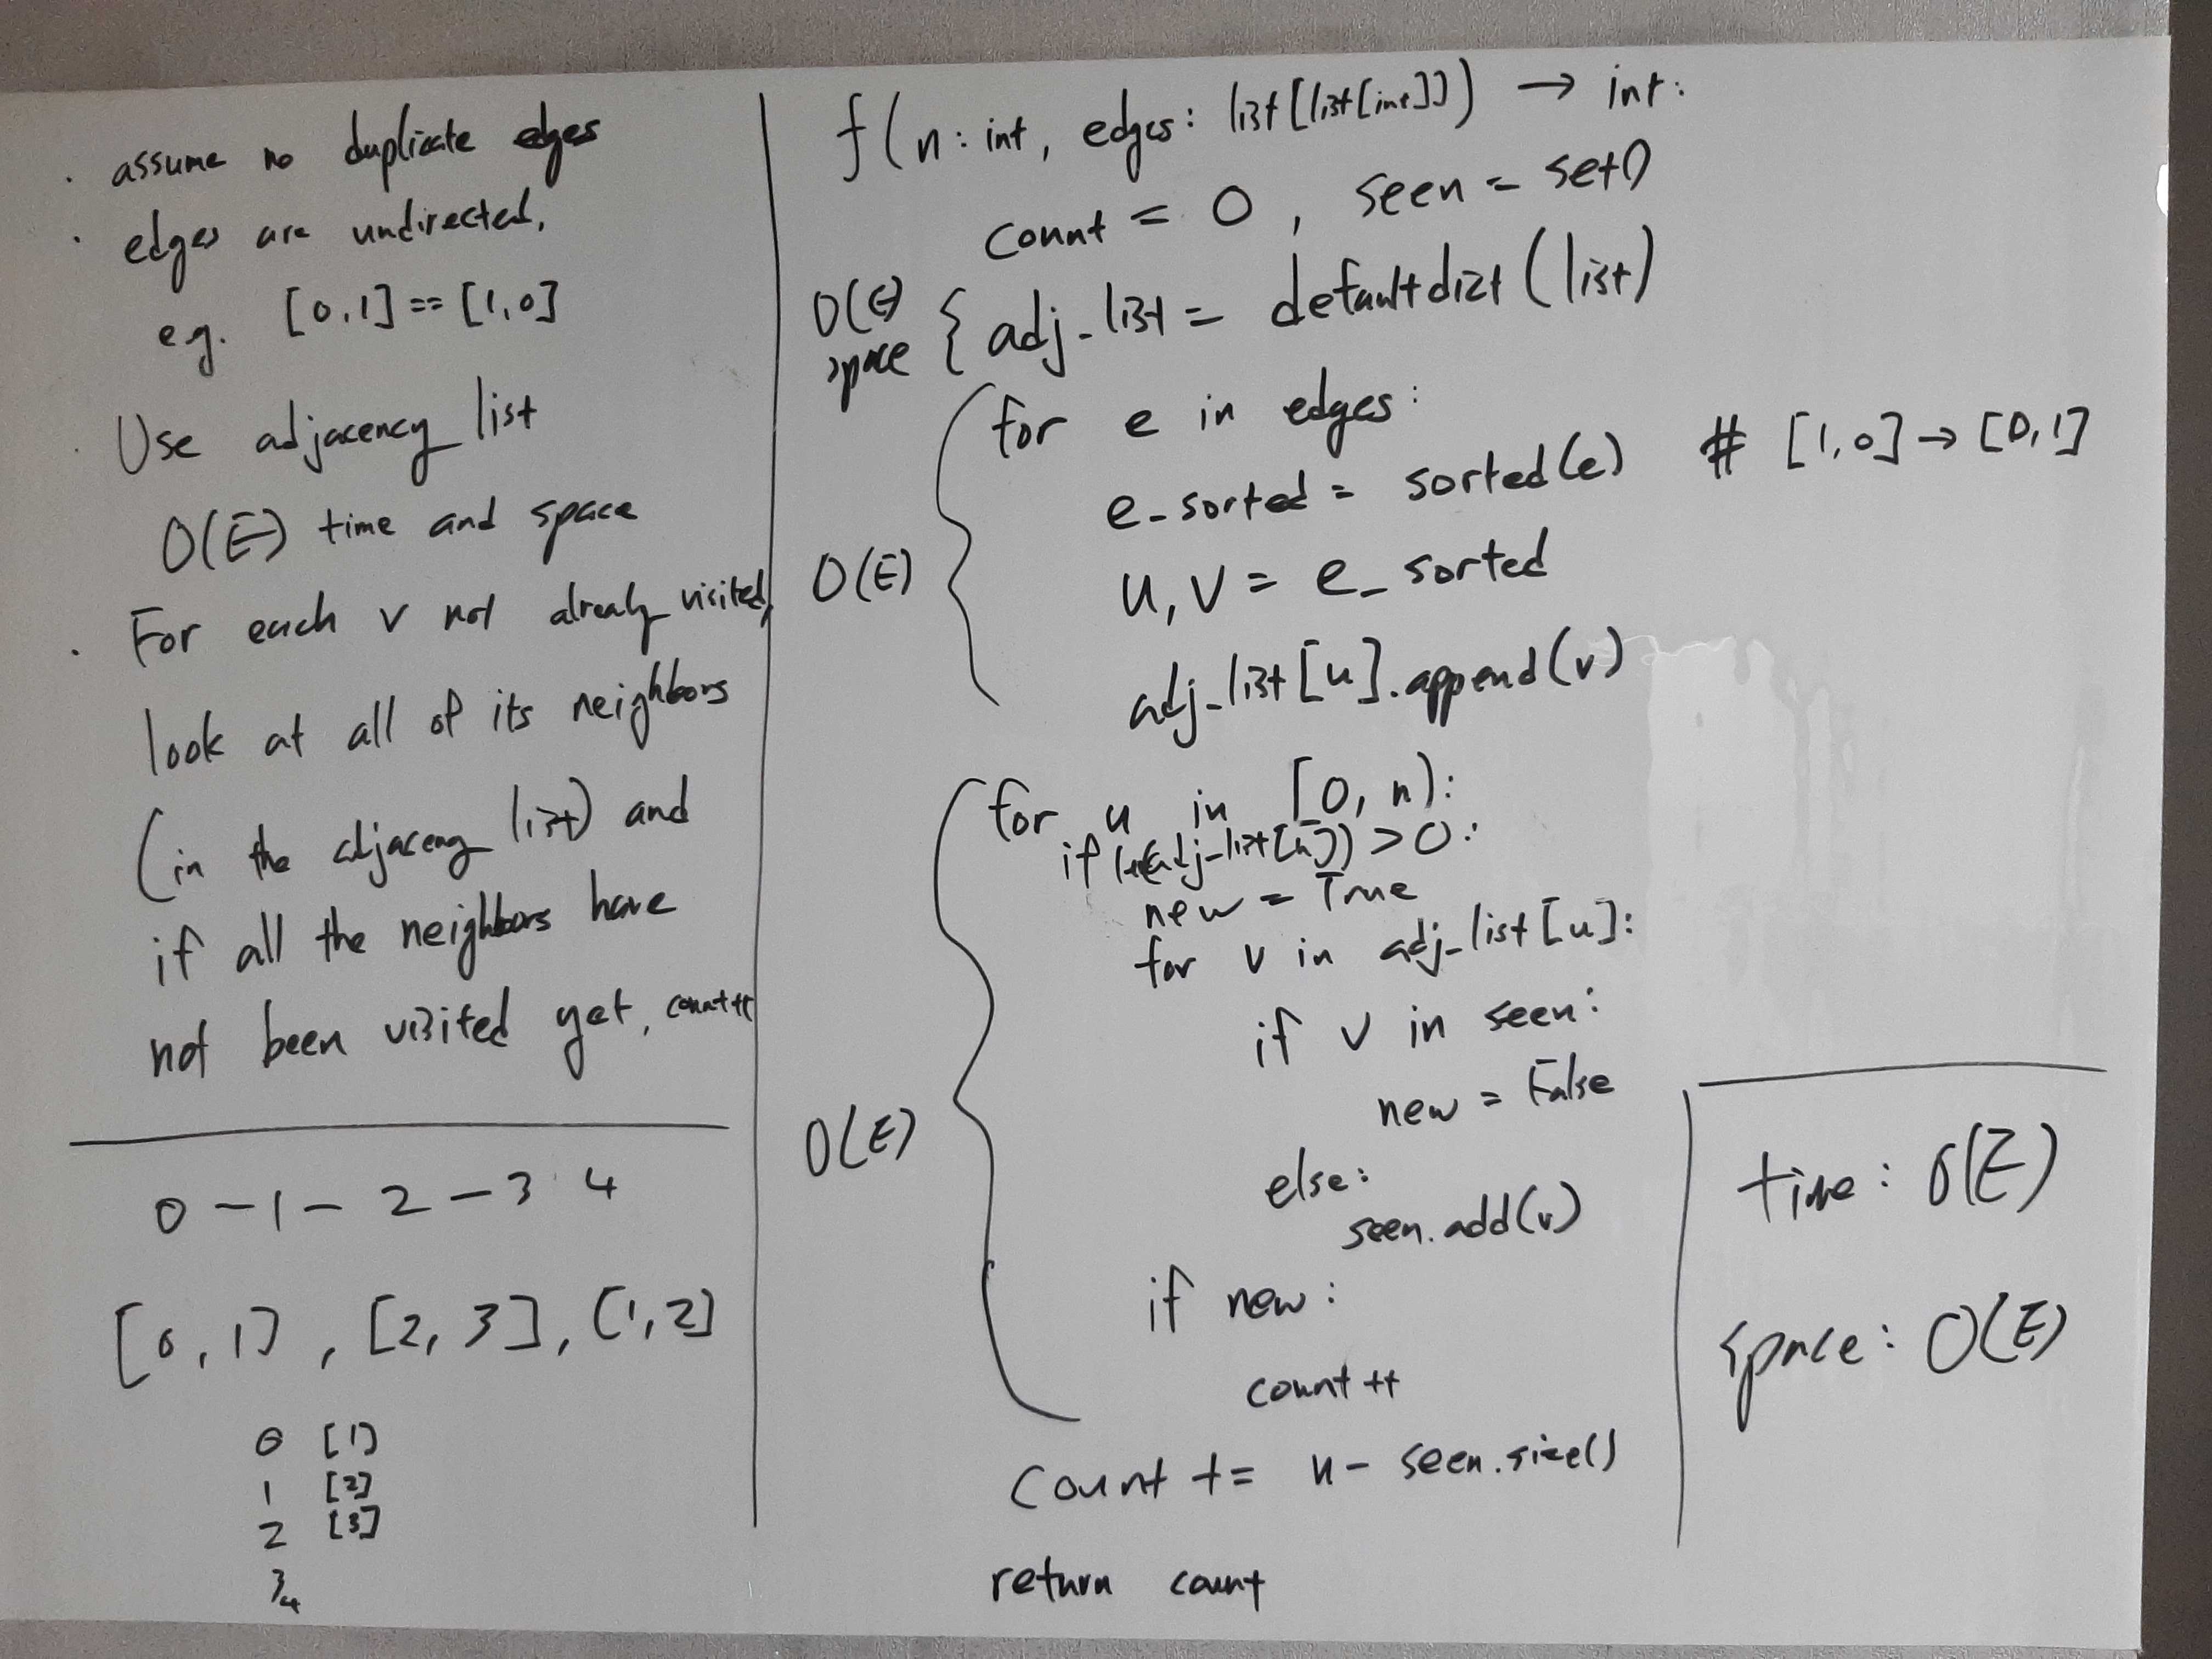 · assume no duplicate edges
· edges are undirected,
e.g. [0,1] == [1,0]
· Use adjacency list
O(E) time and space
· For each v not already visited,
look at all of its neighbors
(in the adjaceny list) and
if all the neighbors have
not been visited yet, count++
0 - 1 - 2 - 3 4
[0, 1], [2, 3], [1, 2]
0 [1]
1 [2]
2 [3]
3
4
f(n: int, edges: list[list[int]]) → int:
count = 0, seen = set()
O(E) space { adj_list = defaultdict(list)
for e in edges:
e_sorted = sorted(e) # [1,0] → [0,1]
O(E)
u, v = e_sorted
adj_list[u].append(v)
for u in [0, n):
if len(adj_list[u]) > 0:
new = True
for v in adj_list[u]:
if v in seen:
new = False
O(E)
else:
seen.add(v)
if new:
count ++
count += n - seen.size()
return count
time: O(E)
space: O(E)